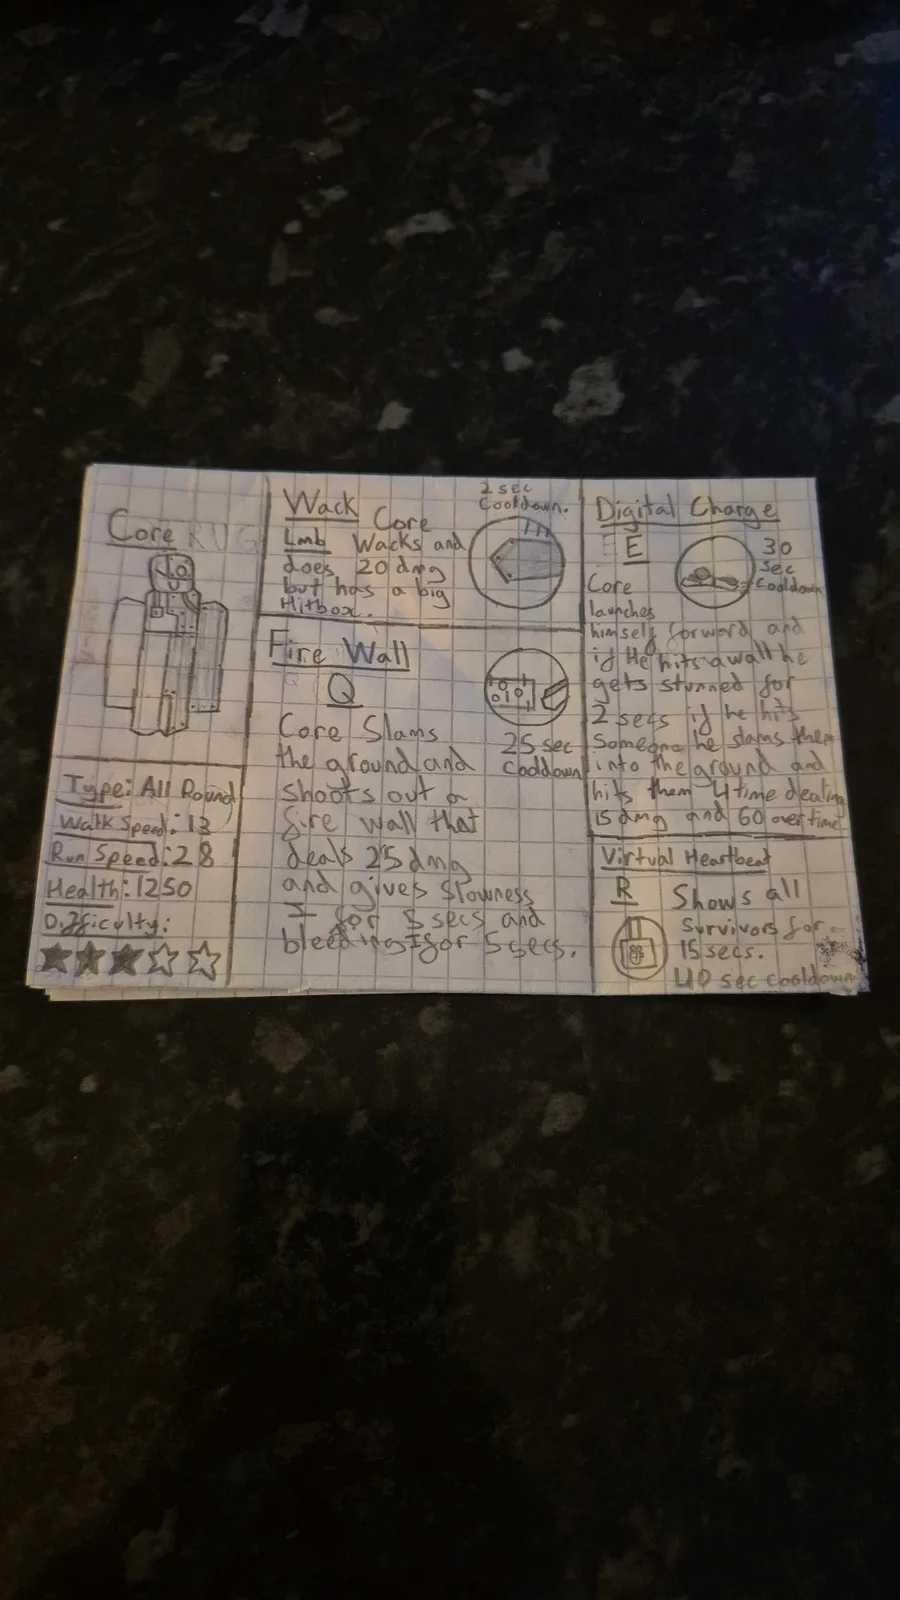 Core
Type: All Round
Walk Speed: 13
Run Speed: 28
Health: 1250
Difficulty:
Wack
2 sec
Cooldown.
Core
Lmb Wacks and
does 20 dmg
but has a big
Hitbox.
Fire Wall
Q
25 sec
Cooldown
Core Slams
the ground and
shoots out a
fire wall that
deals 25 dmg
and gives Slowness
I for 5 secs and
bleeding I for 5 secs.
Digital Charge
E
30
Sec
Cooldown
Core
launches
himself forward and
if He hits a wall he
gets stunned for
2 secs if he hits
Someone he slams them
into the ground and
hits them 4 time dealing
15 dmg and 60 overtime
Virtual Heartbeat
R Shows all
Survivors for
15 secs.
40 sec cooldown